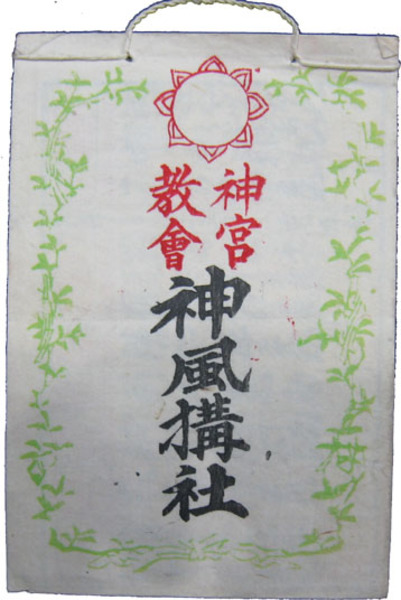 神宮
教會
神風搆社